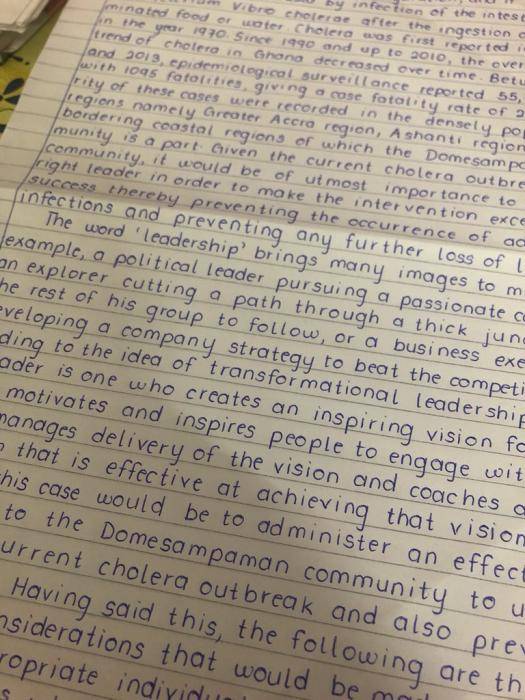 by infection of the intes
Vibro cholerae after the ingestion o
minated food or water. Cholera was first reported i
in the year 1970. Since 1990 and up to 2010, the over
trend of cholera in Ghana decreased over time. Betw
and 2013, epidemiological surveillance reported 55,
with 1095 fatalities, giving a case fatality rate of 2
rity of these cases were recorded in the densely pop
regions namely Greater Accra region, Ashanti region
bordering coastal regions of which the Domesampa
munity is a part. Given the current cholera outbre
community, it would be of utmost importance to
right leader in order to make the intervention exce
success thereby preventing the occurrence of ad
infections and preventing any further loss of l
The word 'leadership' brings many images to m
example, a political leader pursuing a passionate c
an explorer cutting a path through a thick jung
he rest of his group to follow, or a business exe
eveloping a company strategy to beat the competi
ding to the idea of transformational leadership
ader is one who creates an inspiring vision fo
motivates and inspires people to engage wit
nanages delivery of the vision and coaches a
that is effective at achieving that vision
his case would be to administer an effect
to the Domesampaman community to u
urrent cholera outbreak and also prev
Having said this, the following are th
nsiderations that would be
ropriate